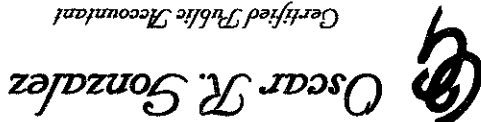 Oscar R. Gonzalez
Certified Public Accountant